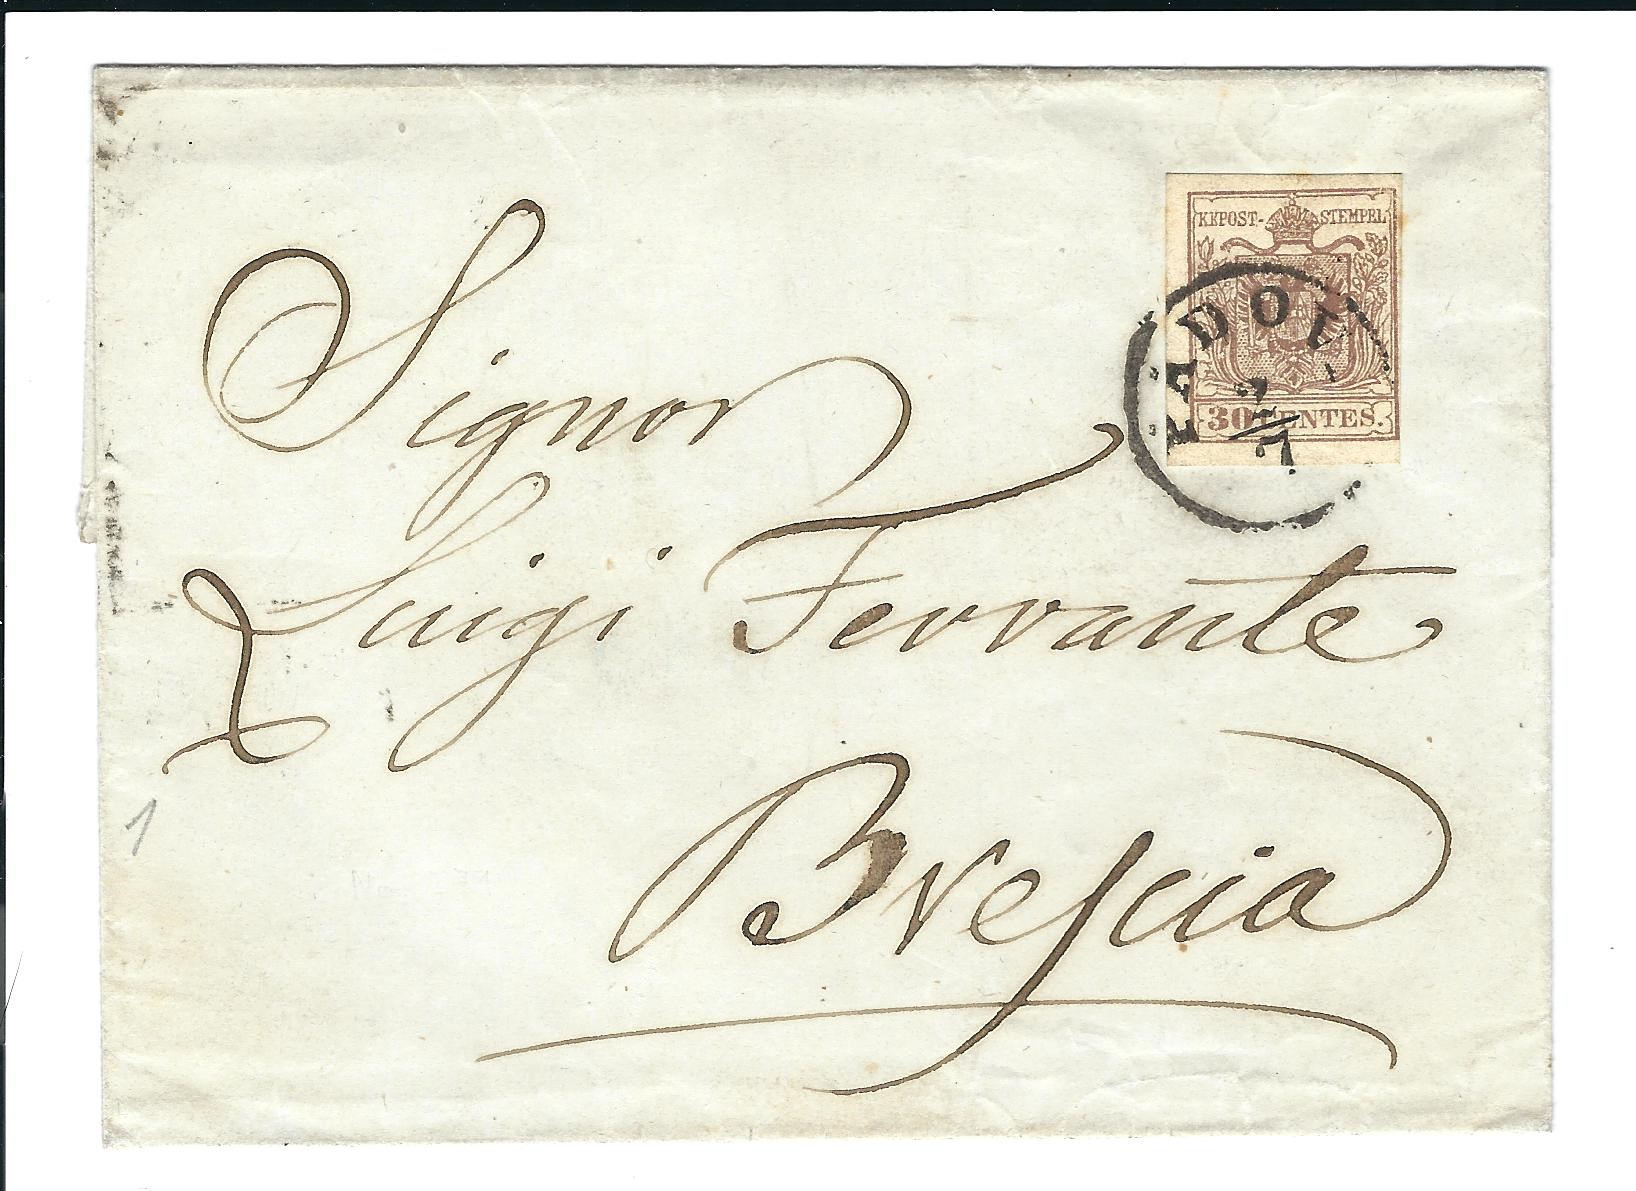 KKPOST-STEMPEL
PADOV
2/7
30 CENTES.
Signor
Luigi Ferrante
Brescia
1